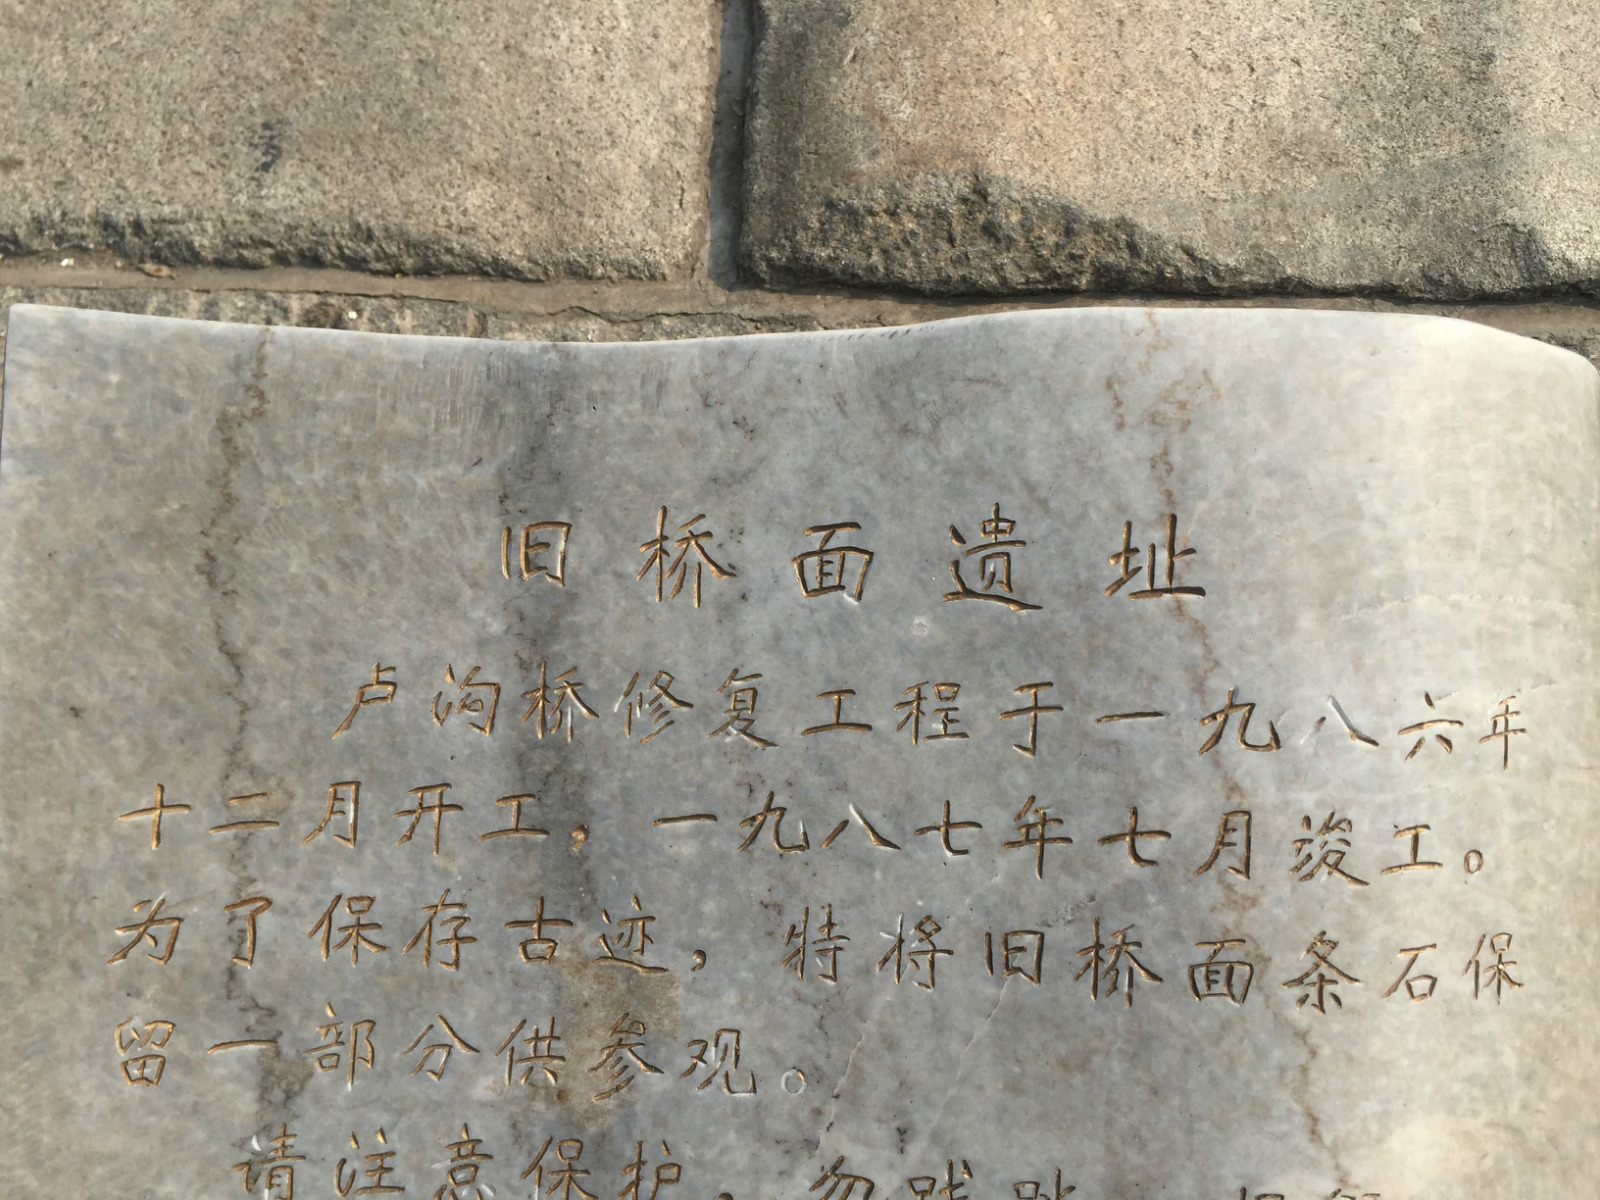 旧桥面遗址
卢沟桥修复工程于一九八六年
十二月开工，一九八七年七月竣工。
为了保存古迹，特将旧桥面条石保
留一部分供参观。
请注意保护，勿践踏